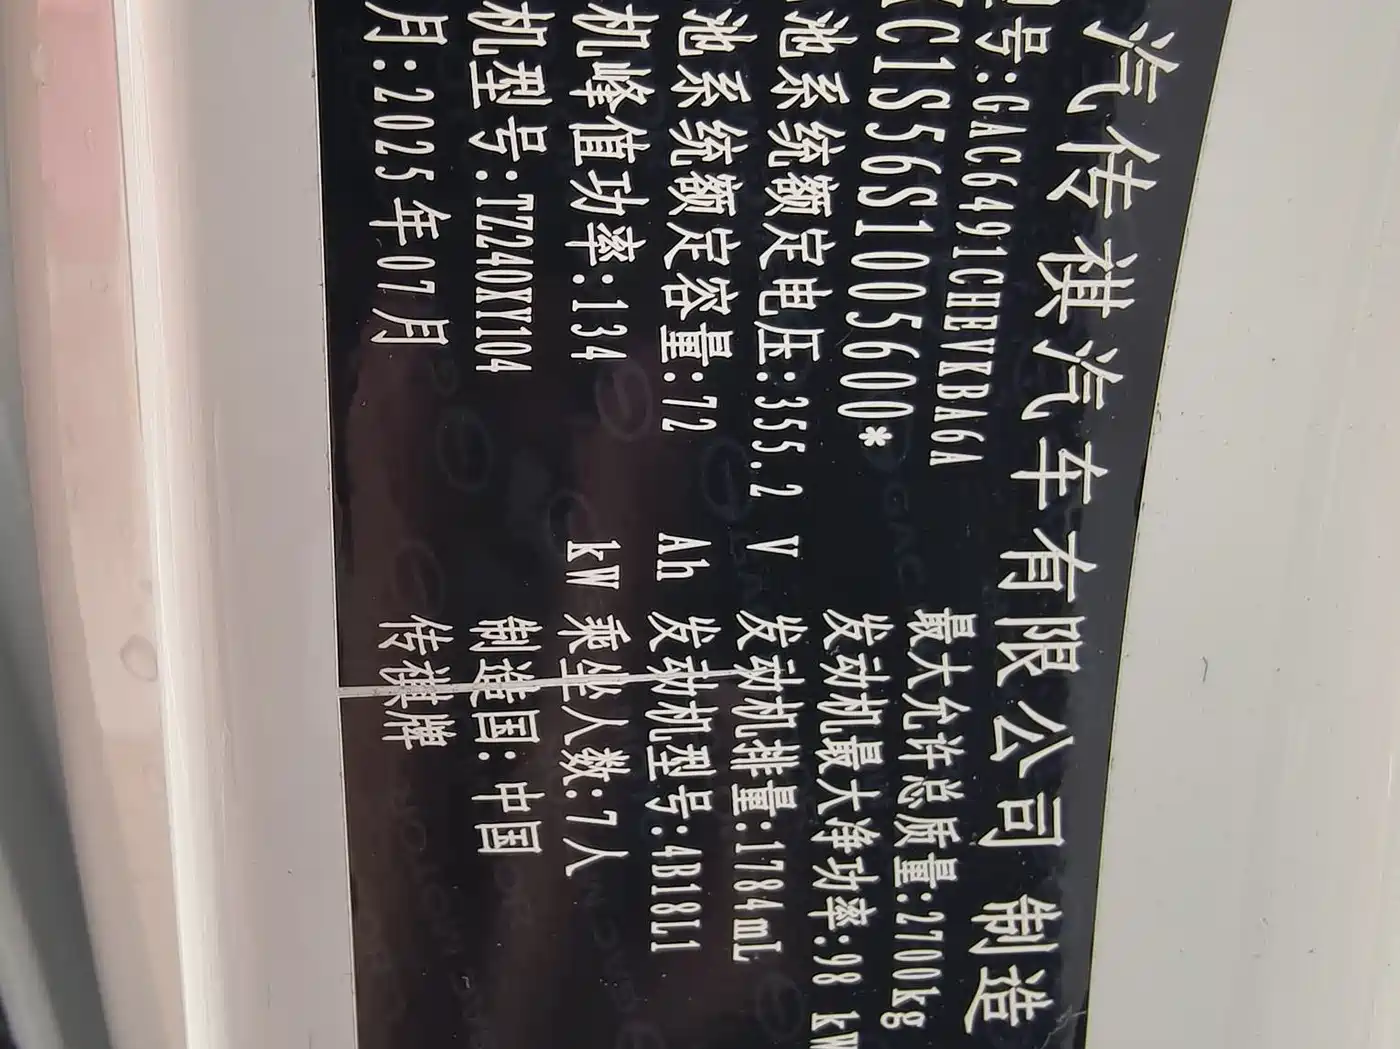 汽传祺汽车有限公司 制造
号:GAC6491CHEVKBA6A
最大允许总质量:2700kg
C1S56S1005600*
发动机最大净功率:98 kW
池系统额定电压:355.2 V
发动机排量:1784mL
池系统额定容量:72 Ah
发动机型号:4B18L1
机峰值功率:134 kW
乘坐人数:7人
机型号:TZ240XY104
制造国:中国
月:2025年07月
传祺牌